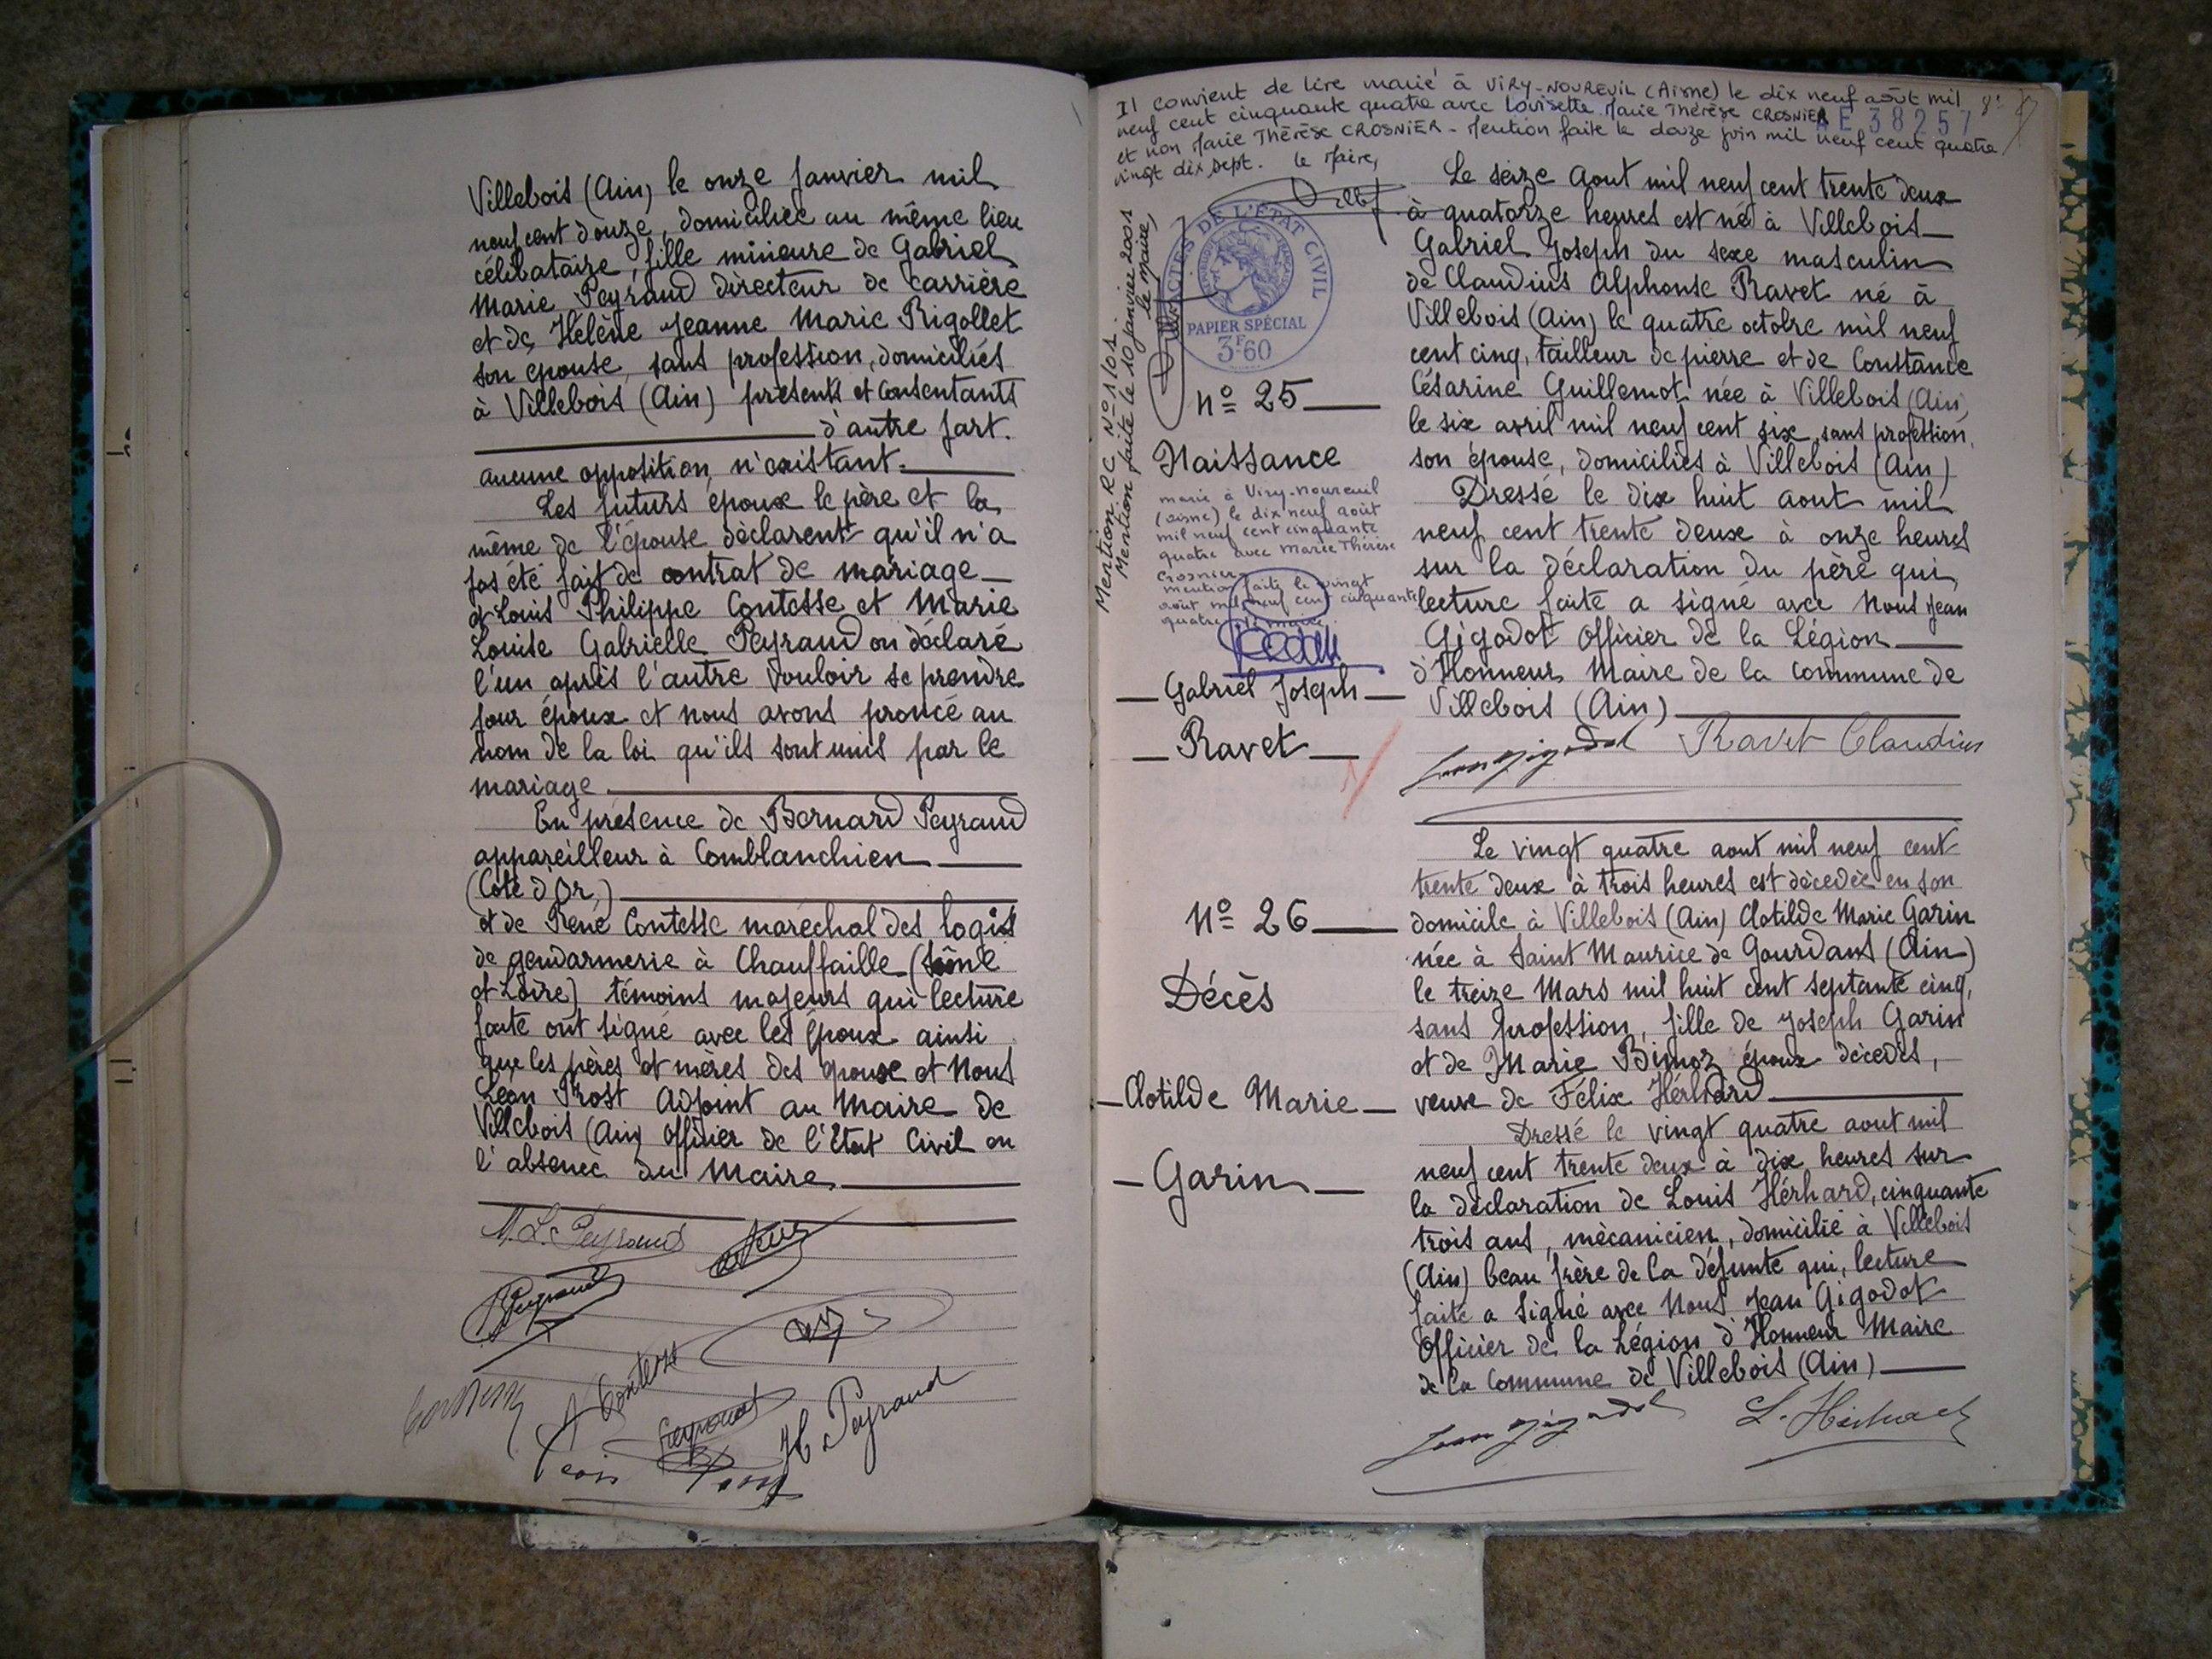 Villebois (Ain) le onze Janvier mil
neuf cent douze, domiciliée au même lieu
célibataire, fille mineure de Gabriel
Marie Peyraud directeur de carrière
et de Hélène Jeanne Marie Rigollet
son epouse, sans profession, domiciliés
à Villebois (Ain) présents et consentants
d'autre part.
aucune opposition n'existant.
Les futurs époux le père et la
même de l'épouse déclarent qu'il n'a
pas été fait de contrat de mariage
et Louis Philippe Contesse et Marie
Louise Gabrielle Peyraud on déclaré
l'un après l'autre vouloir se prendre
pour époux et nous avons proncé au
nom de la loi qu'ils sont unis par le
mariage.
En présence de Bernard Peyraud
appareilleur à Comblanchien
(Côte d'Or,)
et de René Contesse maréchal des logis
de gendarmerie à Chauffaille (Saône
et Loire) témoins majeurs qui lecture
faite ont signé avec les Époux ainsi
que les pères et mères des epouse et Nous
Léon Prost Adjoint au Maire de
Villebois (Ain) Officier de l'Etat Civil en
l'absence du Maire.
M. L. Peyraud
Peyraud
Contesse
Peyraud
H. Peyraud
Il convient de lire marié à VIRY-NOUREUIL (Aisne) le dix neuf août mil
neuf cent cinquante quatre avec Louisette Marie Thérèse CROSNIER
et non Marie Thérèse CROSNIER - Mention faite le douze juin mil neuf cent quatre
vingt dix sept. Le Maire,
AE 38257
ACTES DE L'ÉTAT CIVIL
PAPIER SPÉCIAL
3F60
Mention RC N° 1/01.
Mention faite le 10 janvier 2001
le maire,
N° 25
Naissance
marié à Viry-Noureuil
(Aisne) le dix neuf août
mil neuf cent cinquante
quatre avec Marie Thérèse
Crosnier
mention faite le vingt
août mil neuf cent cinquante
quatre le maire
Gabriel Joseph
Ravet
Le seize Aout mil neuf cent trente deux
à quatorze heures est né à Villebois
Gabriel Joseph du sexe masculin
de Claudius Alphonse Ravet né à
Villebois (Ain) le quatre octobre mil neuf
cent cinq, tailleur de pierre et de Constance
Césarine Guillemot née à Villebois (Ain)
le six avril mil neuf cent six, sans profession,
son épouse, domiciliés à Villebois (Ain)
Dressé le dix huit aout mil
neuf cent trente deux à onze heures
sur la déclaration du père qui,
lecture faite a signé avec Nous Jean
Gigodot Officier de la Légion
d'Honneur Maire de la commune de
Villebois (Ain)
Jean Gigodot Ravet Claudius
N° 26
Décès
Clotilde Marie
Garin
Le vingt quatre aout mil neuf cent
trente deux à trois heures est décedée en son
domicile à Villebois (Ain) Clotilde Marie Garin
née à Saint Maurice de Gourdans (Ain)
le treize Mars mil huit cent septante cinq,
sans profession, fille de Joseph Garin
et de Marie Bimoz époux décedés,
veuve de Félix Hérhard
Dressé le vingt quatre aout mil
neuf cent trente deux à dix heures sur
la déclaration de Louis Hérhard, cinquante
trois ans, mécanicien, domicilié à Villebois
(Ain) beau frère de la défunte qui, lecture
faite a signé avec Nous Jean Gigodot
Officier de la Légion d'Honneur Maire
de la Commune de Villebois (Ain)
Jean Gigodot L. Hérhard